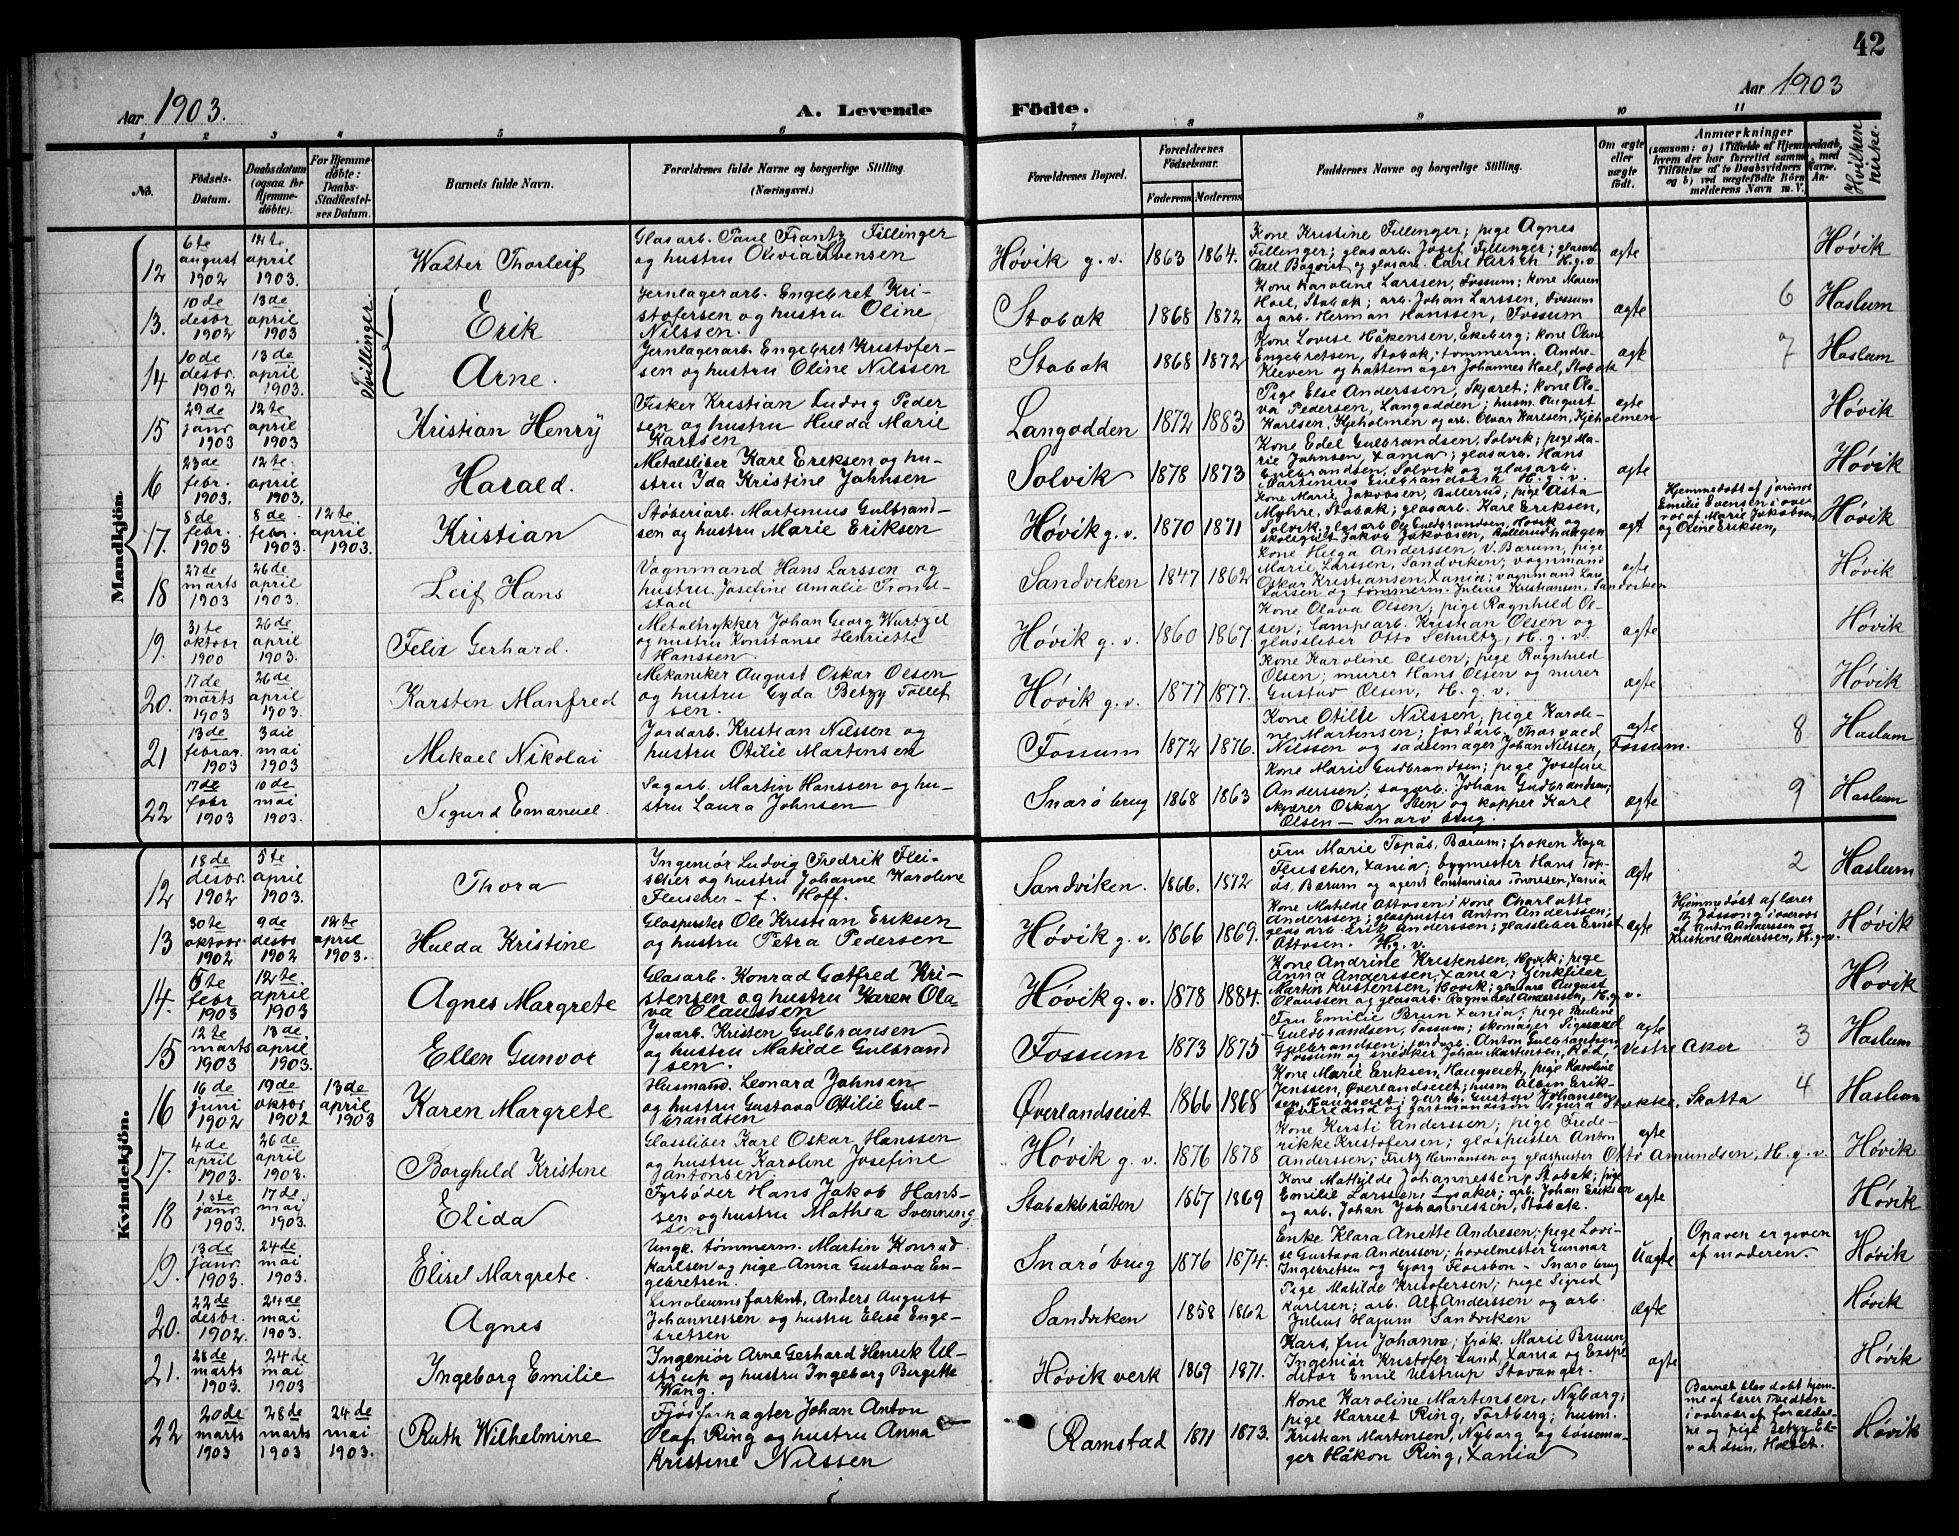 42
Aar 1903.
A. Levende
Fødte.
Aar 1903
1 2 3 4 5 6 7 8 9 10 11
No.
Fødsels-Datum.
Daabsdatum (ogsaa for Hjemmedøbte).
For Hjemmedøbte: Daabs-Stadfæstelses Datum.
Barnets fulde Navn.
Forældrenes fulde Navne og borgerlige Stilling.
(Næringsvei.)
Forældrenes Bopæl.
Forældrenes Fødselsaar.
Faderens
Moderens
Faddernes Navne og borgerlige Stilling.
Om ægte eller uægte født.
Anmærkninger
Hvilken kirke.
Mandkjön.
12 6te august 1902 12te april 1903. Walter Thorleif
Glasarb. Paul Frantz Fillinger
og hustru Olivia Svensen
Høvik g. v. 1863 1864.
Kone Kristine Fillinger; pige Agnes
Fillinger; glasarb. Josef Fillinger; glasarb.
Axel Boqvist og glasarb. Carl Hirsch H. g. v.
ægte Høvik
Tvillinger.
13. 10de desbr. 1902 13de april 1903 Erik
Jernlagerarb. Engebret Kri-
stofersen og hustru Oline
Nilssen.
Stabæk 1868 1872
Kone Karoline Larssen, Fossum; kone Maren
Hoel, Stabæk; arb. Johan Larssen, Fossum
og arb. Herman Hanssen, Fossum
ægte 6 Haslum
14 10de desbr. 1902 13de april 1903. Arne.
Jernlagerarb. Engebret Kristofer-
sen og hustru Oline Nilssen
Stabæk 1868 1872
Kone Lovise Håkensen, Ekeberg; kone Oline
Engebretsen, Stabæk; tømmerm. Andre-
Kleven og hattemager Johannes Hoel, Stabæk
ægte 7 Haslum
15 29de janr 1903 12te april 1903 Kristian Henry
Fisker Kristian Ludvig Peder
sen og hustru Hulda Marie
Karlsen
Langodden 1872 1883
Pige Else Anderssen, Skjæret; kone Ola-
va Pedersen, Langodden; husm. August
Karlsen, Kjeholmen og arb. Olvar Karlsen, Kjeholmen
ægte Høvik
16 23de febr. 1903. 12te april 1903. Harald.
Metalsliber Karl Eriksen og hu-
stru Ida Kristine Johnsen
Solvik 1878 1873
Kone Edel Gulbrandsen, Solvik; pige Ma-
rie Johnsen, Xania; glasarb. Hans
Gulbrandsen, Solvik og glasarb.
Martinius Gulbrandsen H. g. v.
ægte Høvik
17. 8de febr. 1903 8de febr. 1903. 12te april 1903. Kristian
Støberiarb. Martinius Gulbrand-
sen og hustru Marie Eriksen
Høvik g. v. 1870 1871
Kone Marie Jakobsen, Ballerud; pige Asta
Myhre, Stabæk; glasarb. Karl Eriksen,
Solvik, glasarb Ole Guldbrandsen, Høvik og
skolegut Jakob Jakobsen, Ballerudhaugen
ægt
Hjemmedøbt af jormor
Emilie Svensen i over
vær af Marie Jakobsen
og Oline Eriksen,
Høvik
18 27de marts 1903 26de april 1903. Leif Hans
Vognmand Hans Larssen og
hustru Josefine Amalie Trond-
stad
Sandviken 1847 1862
Kone Helga Anderssen, V. Bærum, pige
Marie Larssen, Sandviken; vognmand
Oskar Kristiansen, Xania; vognmand Lars
Larsen og tømmerm. Julius Kristiansen, Sandviken
ægte Høvik
19. 31te oktobr 1900 26de april 1903. Felix Gerhard.
Metaltrykker Johan Georg Wurtzel
og hustru Konstanse Henriette
Hanssen.
Høvik g. v. 1860 1867
Kone Olava Olsen; pige Ragnhild Ol-
sen; lampearb. Kristian Olsen og
glassliber Otto Schultz, H. g. v.
ægte Høvik
20. 17de marts 1903 26de april 1903. Karsten Manfred
Mekaniker August Oskar Olsen
og hustru Gyda Betzy Tollef
sen.
Høvik g. v. 1877 1877.
Kone Karoline Olsen; pige Ragnhild
Olsen; murer Hans Olsen og murer
Gustav Olsen, H. g. v.
ægte Høvik
21 13de februar. 1903 3die mai 1903 Mikael Nikolai
Jordarb. Kristian Nilssen og
hustru Otilie Martensen
Fossum 1872 1876.
Kone Otilie Nilssen; pige Karoli-
ne Martensen; jordarb. Thorvald
Nilssen og sadelmager Johan Nilssen, Fossum.
ægte 8 Haslum
22 17de febr 1903 10de mai 1903. Sigurd Emanuel.
Sagarb. Martin Hanssen og hu-
stru Laura Johnsen
Snarø brug 1868 1863
Kone Marie Gudbrandsen; pige Josefine
Anderssen; sagarb. Johan Gudbrandsen;
skjærer Oskar Sten og kapper Karl
Olsen — Snarø brug.
ægte 9 Haslum
Kvindekjön.
12 18de desbr. 1902 5te april 1903. Thora
Ingeniør Ludvig Fredrik Flei-
scher og hustru Johanne Karoline
Fleischer - f. Hoff.
Sandviken. 1866. 1872
Fru Marie Topås, Bærum; frøken Kaja
Fleischer, Xania; bygmester Hans Top-
ås, Bærum og agent Constansius Tønnesen, Xania
ægte 2 Haslum
13 30te oktobr. 1902 9de desbr 1902 12te april 1903. Hulda Kristine
Glaspuster Ole Kristian Eriksen
og hustru Petra Pedersen
Høvik g. v. 1866 1869.
Kone Matilde Ottosen; kone Charlotte
Anderssen; glaspuster Anton Anderssen;
glasarb. Erik Anderssen; glassliber Ernst
Ottosen. H. g. v.
ægte
Hjemmedøbt af lærer
Th. Jossong i overvær
af Anton Anderssen og
Kristine Anderssen, H. g. v.
Høvik
14. 6te febr 1903 12te april 1903 Agnes Margrete
Glasarb. Konrad Gotfred Kri-
stensen og hustru Karen Ola
va Olaussen
Høvik g. v. 1878 1884.
Kone Andrine Kristensen, Høvik; pige
Anna Anderssen, Xania; Genkfiler
Martin Kristensen, Høvik; glasarb August
Olaussen og glasarb. Ragnvald Anderssen, H. g. v.
Høvik
15 12te marts 1903 13de april 1903. Ellen Gunvor
Jorarb. Kristen Gulbransen
og hustru Matilde Gulbrand
sen.
Fossum 1873 1875
Fru Emilie Brun Xania; pige Pauline
Guldbrandsen, Fossum; skomager Sigwald
Gulbrandsen; jordarb. Anton Gulbrantsen
Fossum og snedker Johan Martinsen, Rød, Vestre Aker
ægte 3 Haslum
16 16de juni 1902 19de oktbr 1902 13de april 1903 Karen Margrete
Husmand. Leonard Johnsen
og hustru Gustava Otilie Gul-
brandsen
Øverlandseiet 1866 1868
Kone Marie Eriksen, Haugseiet, pige Karoline
Jenssen, Øverlandseiet; husm. Albin Erik-
sen, Haugseiet; gardb. Gustav Johansen,
Øverland og gartmandssøn Sigurd Stokke, Skatta
4 Haslum
17. 4de april 1903. 26de april 1903. Borghild Kristine
Glassliber Karl Oskar Hanssen
og hustru Karoline Josefine
Antonsen
Høvik g. v. 1876 1878
Kone Kirsti Anderssen; pige Frede-
rikke Kristofersen; glaspuster Anton
Anderssen; Fritz Hermansen og glaspuster Otto Amundsen, H. g. v.
ægte Høvik
18 1ste janr 1903. 17de mai 1903. Elida
Fyrbøder Hans Jakob Hans-
sen og hustru Mathea Svenning
sen
Stabækbråten 1867 1869
Kone Mathilde Johannessen, Stabæk; pige
Emilie Larssen, Lysaker; arb. Johan Eriksen
og arb. Johan Johannessen, Stabæk.
ægte Høvik
19. 13de janr. 1903. 24de mai 1903. Elisel Margrete.
Ungk. tømmerm. Martin Konrad
Karlsen og pige Anna Gustava En-
gebretsen.
Snarø brug 1876 1874.
Enke Klara Anette Andresen; pige Lovi-
se Gustava Anderssen; høvelmester Gunnar
Ingebretsen og Georg Floisbon - Snarø brug
Uægte
Opgaven er given
af moderen
Høvik
20. 22de desbr. 1902. 24de mai 1903. Agnes
Linoleumsfarknt, Anders August
Johannessen og hustru Elise Enge-
bretsen
Sandviken 1858 1862
Pige Matilde Kristofersen; pige Sigrid
Karlsen; arb. Alf Anderssen og arb.
Julius Hajum Sandviken
ægte Høvik
21. 28de marts 1903. 24de mai 1903 Ingeborg Emilie
Ingeniør Arne Gerhard Henrik Ul-
strup og hustru Ingeborg Birgitte
Wang.
Høvik verk 1869 1871.
Kars, fru Johanne; frøk. Marie Bruun,
Ingeniør Kristofer Lund, Xania og Expe
ditør Emil Ulstrup Stavanger.
ægte Høvik
22 20de marts 1903 28de marts 1903 24de mai 1903. Ruth Wilhelmine
Fjøsforpagter Johan Anton
Olaf Ring og hustru Anna
Kristine Nilssen
Ramstad 1871 1873.
Kone Karoline Martensen, Nyborg;
pige Harriet Ring, Tortberg; husm.
Kristian Martinsen, Nyborg og bossma-
ger Håkon Ring, Xania
Barnet blev døbt hjem-
me af lærer Tredten
i overvær af forældre-
ne og pige Betzy Ed-
vardsen, Holtet.
Høvik